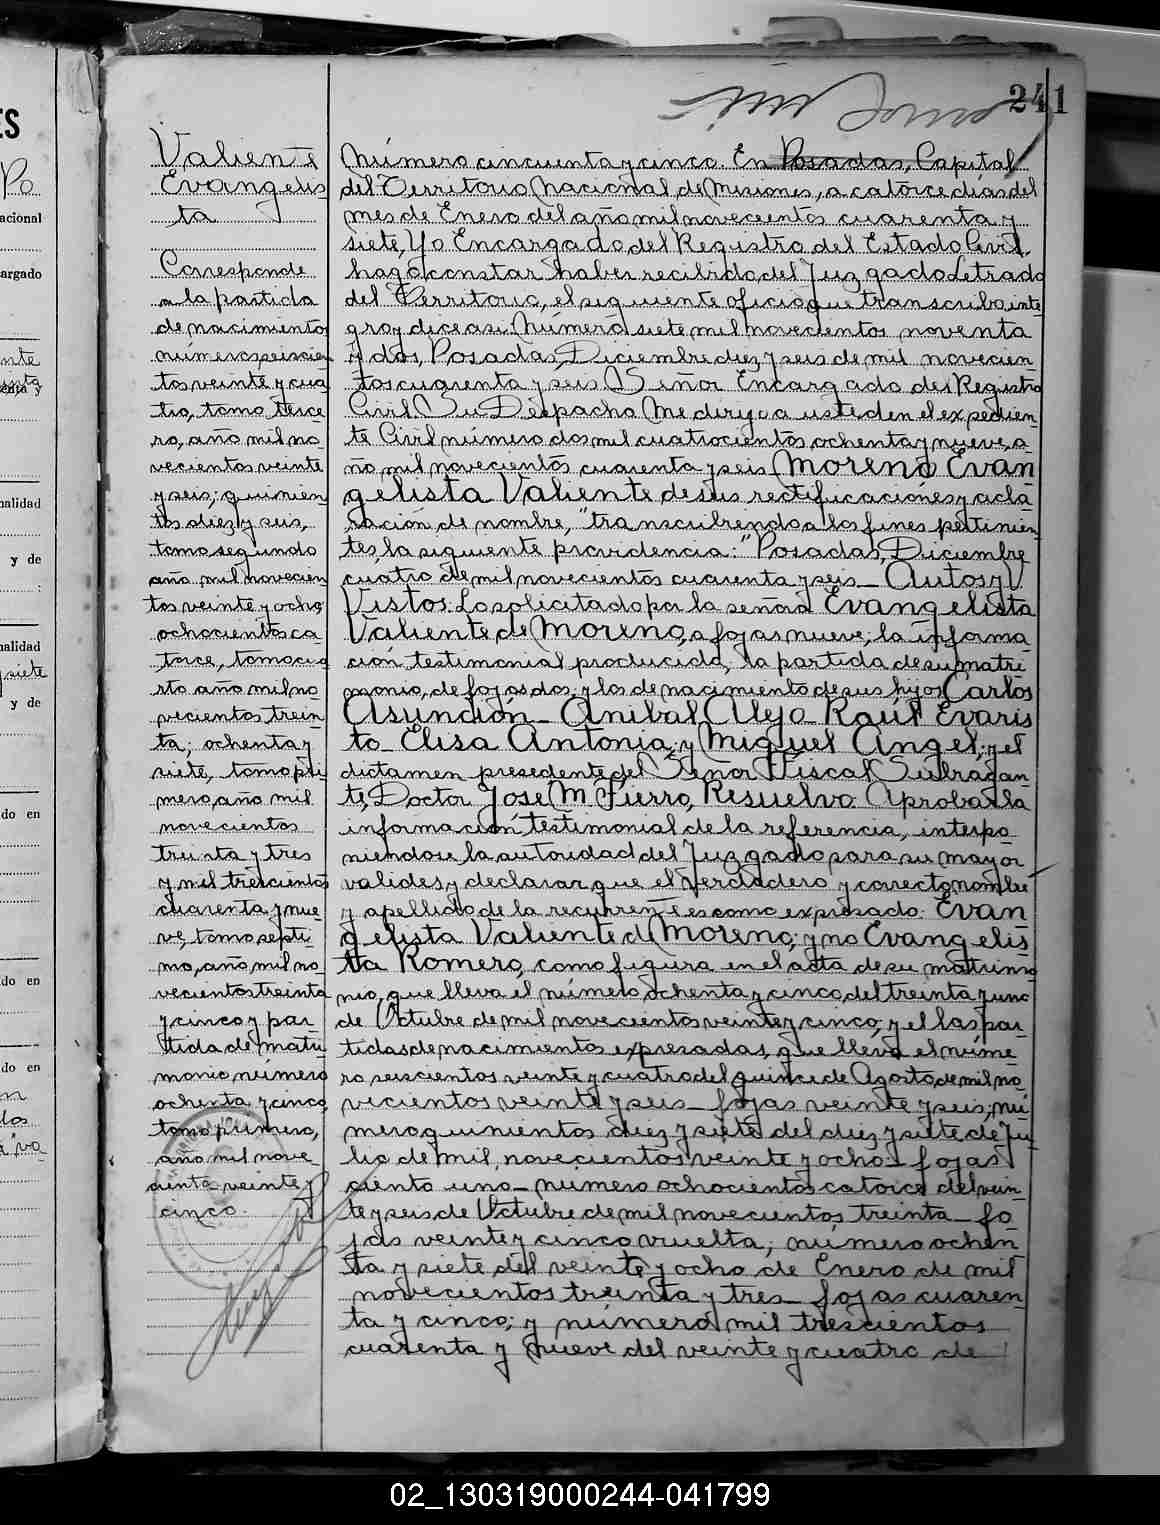 241
Valiente
Evangelis
ta
Corresponde
a la partida
de nacimientos
número seiscien
tos veinte y cua
tro, tomo terce
ro, año mil no
vecientos veinte
y seis; quinien
tos diez y seis,
tomo segundo
año mil novecien
tos veinte y ocho
ochocientos ca
torce, tomo cua
rto año mil no
vecientos trein
ta; ochenta y
siete, tomo pri
mero, año mil
novecientos
treinta y tres
y mil trescientos
cuarenta y nue
ve, tomo septi
mo, año mil no
vecientos treinta
y cinco y par
tida de matri
monio número
ochenta y cinco,
tomo primero,
año mil nove
cientos veinte y
cinco.
Número cincuenta y cinco. En Posadas, Capital
del Territorio Nacional de Misiones, a catorce dias del
mes de Enero del año mil novecientos cuarenta y
siete, Yo Encargado del Registro del Estado Civil,
hago constar haber recibido, del Juzgado Letrado
del Territorio, el siguiente oficio que transcribo inte
gro y dice asi: Número siete mil novecientos noventa
y dos, Posadas, Diciembre diez y seis de mil novecien
tos cuarenta y seis Señor Encargado del Registro
Civil Su Despacho Me dirijo a usted en el expedien
te Civil número dos mil cuatrocientos ochenta y nueve, a
ño mil novecientos cuarenta y seis Moreno Evan
gelista Valiente de sus rectificaciones y acla
ración de nombre, "transcribiendo a los fines pertinien
tes la siguiente providencia: "Posadas, Diciembre
cuatro de mil novecientos cuarenta y seis_ Autos y
Vistos: Lo solicitado por la señora Evangelista
Valiente de Moreno, a fojas nueve; la informa
ción testimonial producida, la partida de su matri
monio, de fojas dos; y los de nacimiento de sus hijos Carlos
Asunción_ Anibal Alejo_ Raúl Evaris
to_ Elisa Antonia; y Miguel Angel; y el
dictamen presedente del Señor Fiscal Subrogan
te, Doctor José M. Fierro, Resuelvo: Aprobar la
información testimonial de la referencia, interpo
niendose la autoridad del Juzgado para su mayor
valides y declarar que el verdadero y correcto nombre
y apellido de la recurrente es como expresado: Evan
gelista Valiente de Moreno; y no Evangelis
ta Romero, como figura en el acta de su matrimo
nio, que lleva el número ochenta y cinco, del treinta y uno
de Octubre de mil novecientos veinte y cinco; y el las par
tidas de nacimientos expresadas, que lleva el núme
ro seiscientos veinte y cuatro del quince de Agosto de mil no
vecientos veinte y seis_ fojas veinte y seis; nú
mero quinientos diez y siete del diez y siete de Ju
lio de mil novecientos veinte y ocho_ fojas
ciento uno_ número ochocientos catorce del vein
te y seis de Octubre de mil novecientos treinta_ fo
jas veinte y cinco vuelta; número ochen
ta y siete del veinte y ocho de Enero de mil
novecientos treinta y tres_ fojas cuaren
ta y cinco; y número mil trescientos
cuarenta y nueve del veinte y cuatro de
02_130319000244-041799